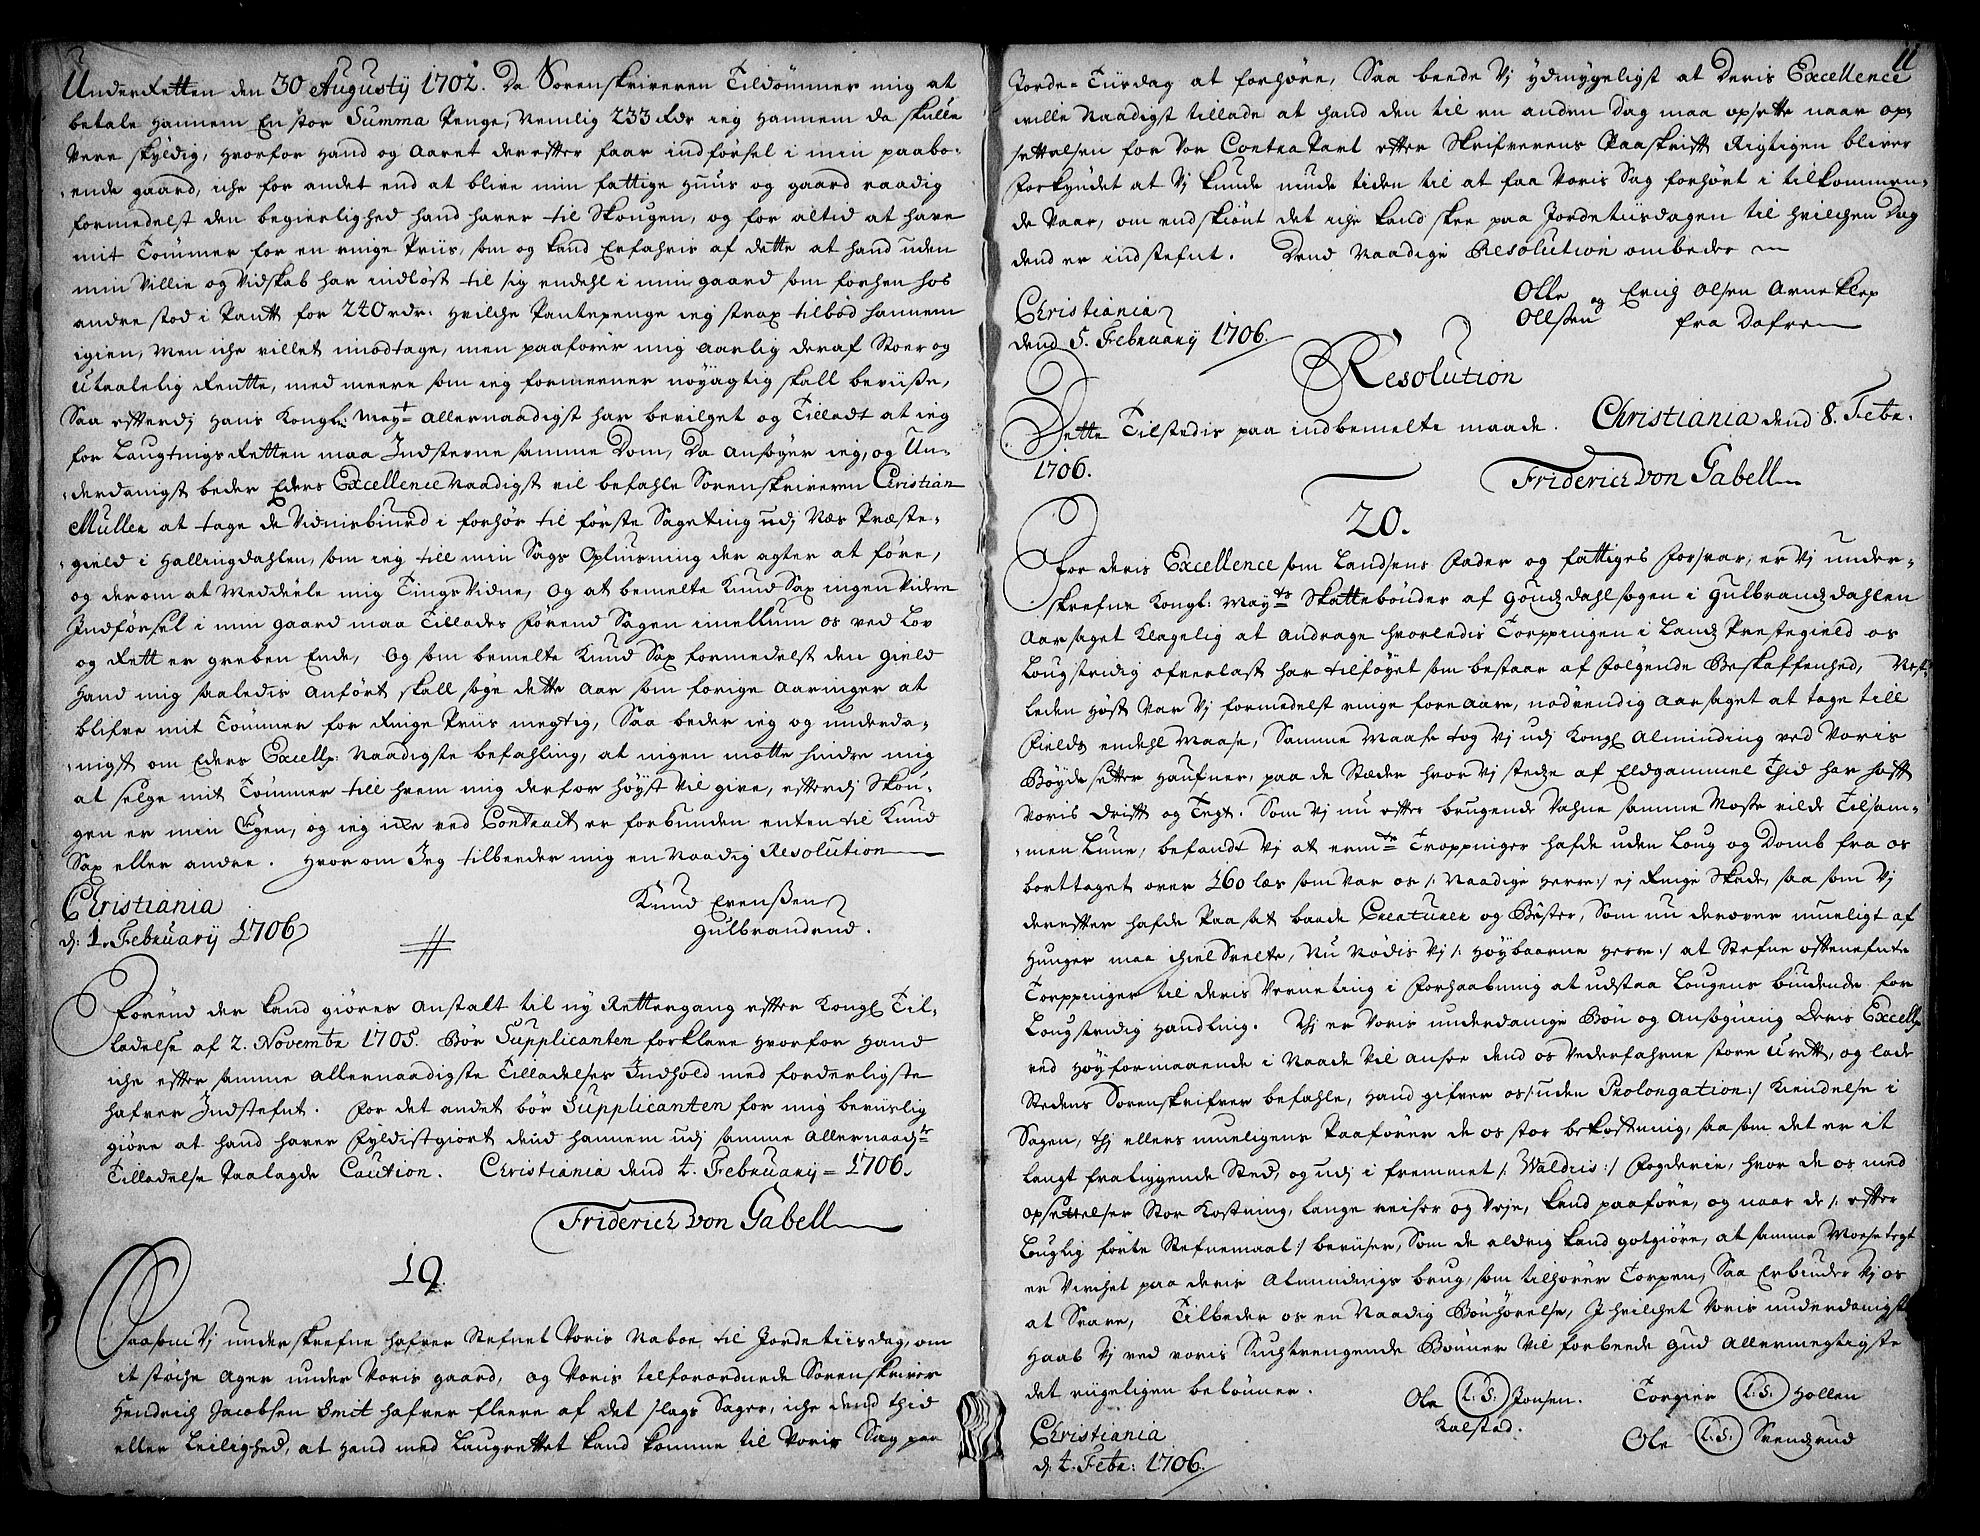 UnderRetten den 30 Augustij 1702. Da Sorenskriveren Tildømmer mig at
betale Hannem En stor Summa Penge, Nemlig 233 Rdr ieg Hannem da skulle
Vere skyldig, Hvorfor Hand og Aaret derefter faar indførsel i min paabo-
ende gaard, iche for andet end at blive min fattige Huus og gaard raadig
formedelst den begierlighed hand haver til Skougen, og for altid at have
mit Tømmer for en ringe Priis, som og kand Erfahris af dette at hand uden
min Villie og Vidskab har indløst til sig endehl i min gaard som forhen hos
andre stod i Pantt for 240 rdr. Hvilche Pantepenge ieg strax tilbød Hannem
igien, Men iche villet imodtage, men paafører mig Aarlig deraf Stoer og
Utaalelig Rentte, med meere som ieg formeener nøyagtig skall beviisse,
Saa efterdj Hans Kongl: May:t Allernaadigst har bevilget og Tilladt at ieg
for LaugtingsRetten maa Indstevne samme Dom, Da Ansøger ieg, og Un-
derdanigst beder Eders Excellence Naadigst vil befahle Sorenskriveren Christian
Muller at tage de Vidnisbiurd i forhør til første Sageting udj Næs Præste-
gield i Hallingdahlen, som ieg till min Sags Opliusning der agter at føre,
og derom at Meddeele mig TingsVidne, Og at bemelte Knud Sax ingen videre
Indførsel i min gaard maa Tillades førend Sagen imellum os ved Lov
og Rett er greben Ende, Og som bemelte Knud Sax formedelst den gield
Hand mig saaledis Anført skall søge dette Aar som forige Aaringer at
blifve mit Tømmer for Ringe Priis megtig, Saa beder ieg og underda-
nigst om Eders Excellz: Naadigste befahling, at ingen motte hindre mig
at selge mit Tømmer till hvem mig derfor høyst vil give, efterdj Skou-
gen er min Egen, og ieg iche ved Contract er forbunden enten til Knud
Sax eller andre. Hvorom Jeg tilbeeder mig en Naadig Resolution
Christiania
d: 1. Februarij 1706
Knud Evenssen
Gulbrandrud.
Førend der kand giøres Anstalt til ny Rettergang efter Kongl Til-
ladelse af 2. Novembr 1705. Bør Supplicanten forklare Hvorfor Hand
iche efter samme Allernaadigste Tilladelses Indhold med forderligste
hafver Indstefnt. For det andet bør Supplicanten for mig beviislig
giøre at hand haver Fyldistgiort dend hannem udj samme Allernaadste
Tilladelse Paalagde Caution. Christiania dend 4. Februarij 1706.
Friderich von Gabell
19.
Saasom Vj underskrefne hafver Stefnet Voris Naboe til Jordetiisdag, om
it støche Ager under Voris gaard, og Voris tilforordnede Sorenskriver
Hendrich Jacobsen Smit hafver fleere af det slags Sager, iche dend thid
eller Leilighed, at Hand med Laugrettet kand komme til Voris Sag paa
11
Jorde-Tiisdag at forhøre, Saa beede Vj ydmygeligst at Deris Excellence
ville Naadigst tillade at hand den til en anden Dag maa opsette naar op-
settelsen for Vor ContraPart efter Skrifverens Paaskrift Rigtigen bliver
forkyndet at Vj kunde mude tiden til at faa Voris Sag forhørt i tilkommen-
de Vaar, om endskiønt det iche kand skee paa Jordetiisdagen til hvilchen Dag
dend er indstefnt. Dend Naadige Resolution ombeder
Olle og Erich Olsen Arneklep
Ollsen fra Dofre
Christiania
dend 5. Februarij 1706.
Resolution
Dette Tilstedis paa indbemelte maade. Christiania dend 8. Febr.
1706.
Friderich von Gabell
20.
For deris Excellence som Landsens Fader og fattiges Forsvar, er Vj under-
skrefne Kongl: Mayts Skattebønder af Goudzdahl sogen i Gulbrandzdahlen
Aarsaget Klagelig at Andrage hvorledis Torppingen i Landz Prestegield os
Lougstridig ofverlast har tilføyet som bestaar af følgende Beskaffenhed, Nest-
leden Høst var Vj formedelst ringe fore Aare, nødvendig Aarsaget at tage till
Fieldz endehl Maase, Samme Maase tog Vj udj Kongl Alminding ved Voris
Bøyde setter Haufner, paa de Stæder hvor Vj stedze af Eldgammel Thid har haft
Voris Drift og Tegt. Som Vj nu efter brugende Vahne samme Mosse vilde Tilsam-
men Lune, befandt Vj at ermte Troppinger hafde uden Loug og Domb fra os
borttaget over 160 læs som Var os /: Naadige Herre :/ ej Ringe Skade, saa som Vj
derefter hafde Paasat baade Creaturer og Bester, Som nu derover mueligt af
Hunger maa ihiel Svelte, Nu Nødis Vj /: Høybaarne Herre :/ at Stefne oftenefnte
Torppinger til deris Verneting i Forhaabning at udstaa Lougens biudende for
Lougstridig Handling. Thj er Voris underdanige Bøn og Ansøgning Deris Excellz
ved Høyformaaende i Naade Vil ansee dend os Vederfahrne store Urett, og lade
Stedens Sorenskrifver befahle, Hand gifver os /: uden Prolongation :/ Kiendelse i
Sagen, thj ellers mueligens Paafører de os stor bekostning, saasom det er it
langt fraliggende Sted, og udj i fremmet /: Waldris :/ Fogderie, hvor de os med
Opsettelser Stor Kostning, Lange reiser og Veje, kand paaføre, og naar de /: efter
Louglig førte Stefnemaal :/ beviiser, Som de aldrig kand gotgiøre, at samme Moesetegt
er Virchet paa deris Almindings brug, som tilhører Torpen, Saa Erbiuder Vj os
at Svare, Tilbeder os en Naadig Bønhørelse, I hvilchet Voris underdanigst
Haab Vj ved voris Suchtrengende Bønner Vil forbeede Gud Allermegtigste
det riigeligen belønner.
Ole L.S. Jonsen. Torgier L.S. Hollen
Kalstad.
Ole L.S. Svendzrud
Christiania
d: 4. Febr: 1706.